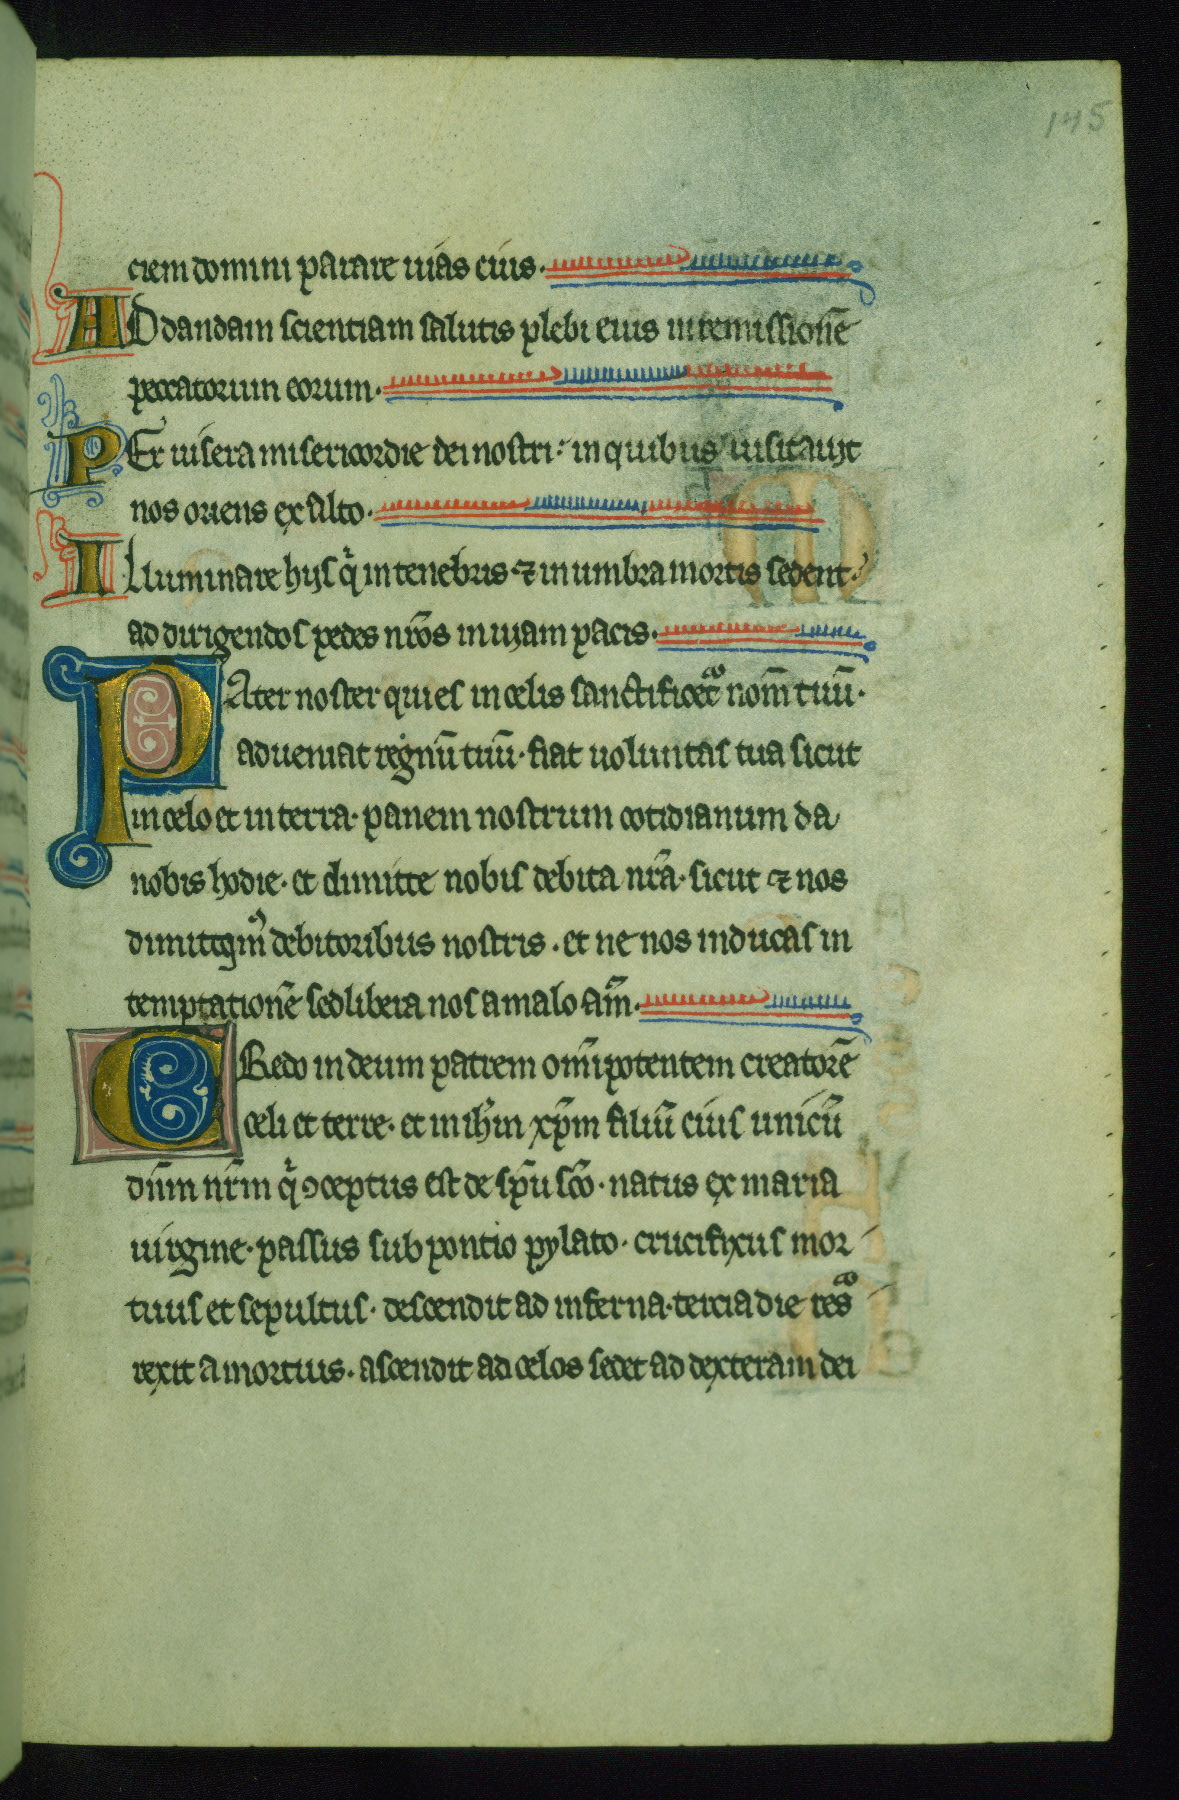 145
ciem domini parare uias eius.
AD dandam scientiam salutis plebi eius in remissionē
peccatorum eorum.
PEr uisera misericordie dei nostri: in quibus uisitauit
nos oriens ex alto.
ILluminare hijs q̇ in tenebris ⁊ in umbra mortis sedent:
ad dirigendos pedes nr̄os in uiam pacis.
PAter noster qui es in celis sanctificet᷑ nom̄ tuū.
adueniat regnū tuū. fiat uoluntas tua sicut
in celo et in terra. panem nostrum cotidianum da
nobis hodie. et dimitte nobis debita nr̄a. sicut ⁊ nos
dimittim᷒ debitoribus nostris. et ne nos inducas in
temptationē sed libera nos a malo am̄.
CRedo in deum patrem om̄ipotentem creatorē
celi et terre. et in ih̄m xp̄m filiū eius unicū
dn̄m nr̄m q̇ ꝯceptus est de sp̄u sc̄o. natus ex maria
uirgine. passus sub pontio pylato. crucifixus mor
tuus et sepultus. descendit ad inferna. tercia die res
rexit a mortuis. ascendit ad celos sedet ad dexteram dei